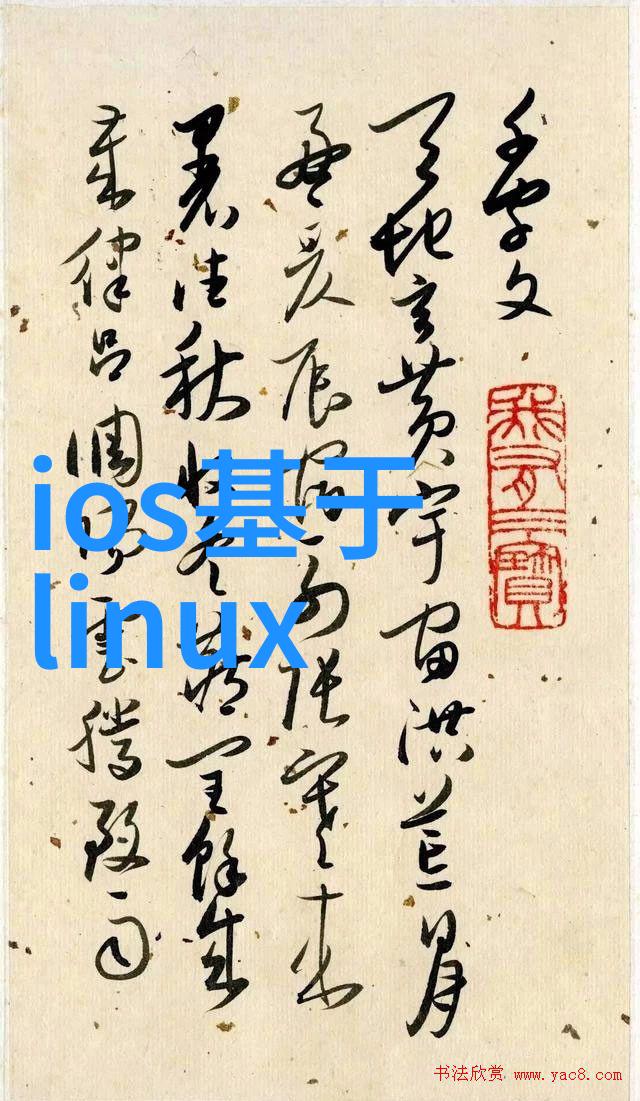 千字文
天地玄黄宇宙洪荒日月
盈昃辰宿列張寒来
暑往秋收冬藏閏餘成
歲律吕調陽雲騰致雨
我有三寶
ios基于
linux
书法欣赏 www.yac8.com